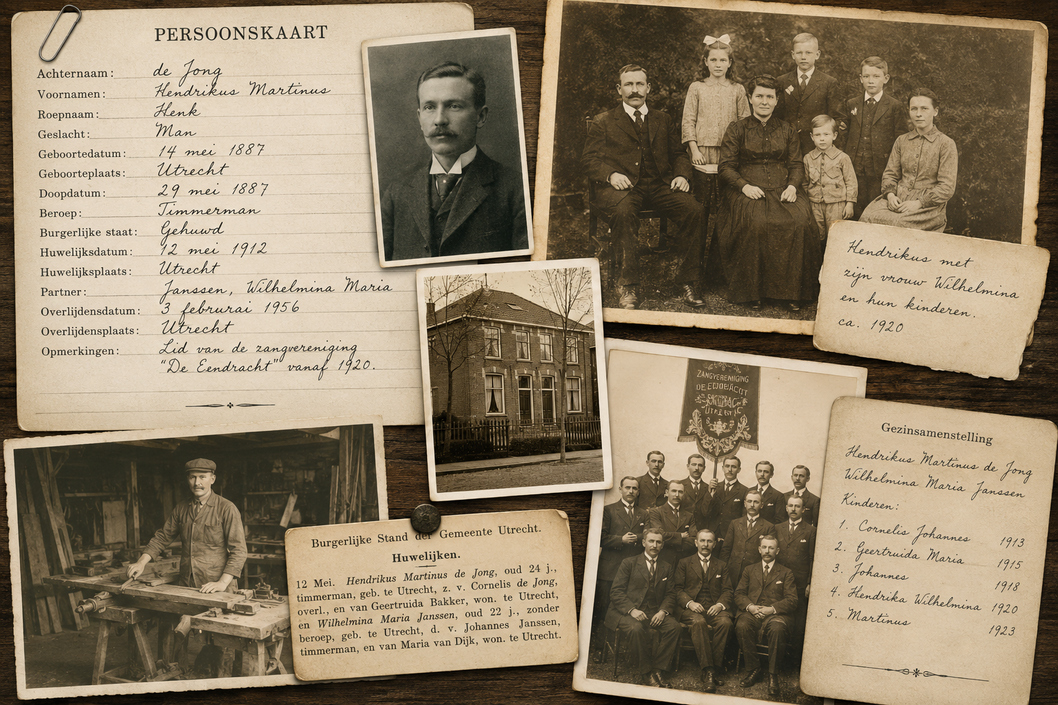 PERSOONSKAART
Achternaam: de Jong
Voornamen: Hendrikus Martinus
Roepnaam: Henk
Geslacht: Man
Geboortedatum: 14 mei 1887
Geboorteplaats: Utrecht
Doopdatum: 29 mei 1887
Beroep: Timmerman
Burgerlijke staat: Gehuwd
Huwelijksdatum: 12 mei 1912
Huwelijksplaats: Utrecht
Partner: Janssen, Wilhelmina Maria
Overlijdensdatum: 3 februrai 1956
Overlijdensplaats: Utrecht
Opmerkingen: Lid van de zangvereniging
"De Eendracht" vanaf 1920.
Hendrikus met
zijn vrouw Wilhelmina
en hun kinderen.
ca. 1920
ZANGVEREENIGING
Burgerlijke Stand der Gemeente Utrecht.
Huwelijken.
12 Mei. Hendrikus Martinus de Jong, oud 24 j.,
timmerman, geb. te Utrecht, z. v. Cornelis de Jong,
overl., en van Geertruida Bakker, won. te Utrecht,
en Wilhelmina Maria Janssen, oud 22 j., zonder
beroep, geb. te Utrecht, d. v. Johannes Janssen,
timmerman, en van Maria van Dijk, won. te Utrecht.
Gezinsamenstelling
Hendrikus Martinus de Jong
Wilhelmina Maria Janssen
Kinderen:
1. Cornelis Johannes 1913
2. Geertruida Maria 1915
3. Johannes 1918
4. Hendrika Wilhelmina 1920
5. Martinus 1923